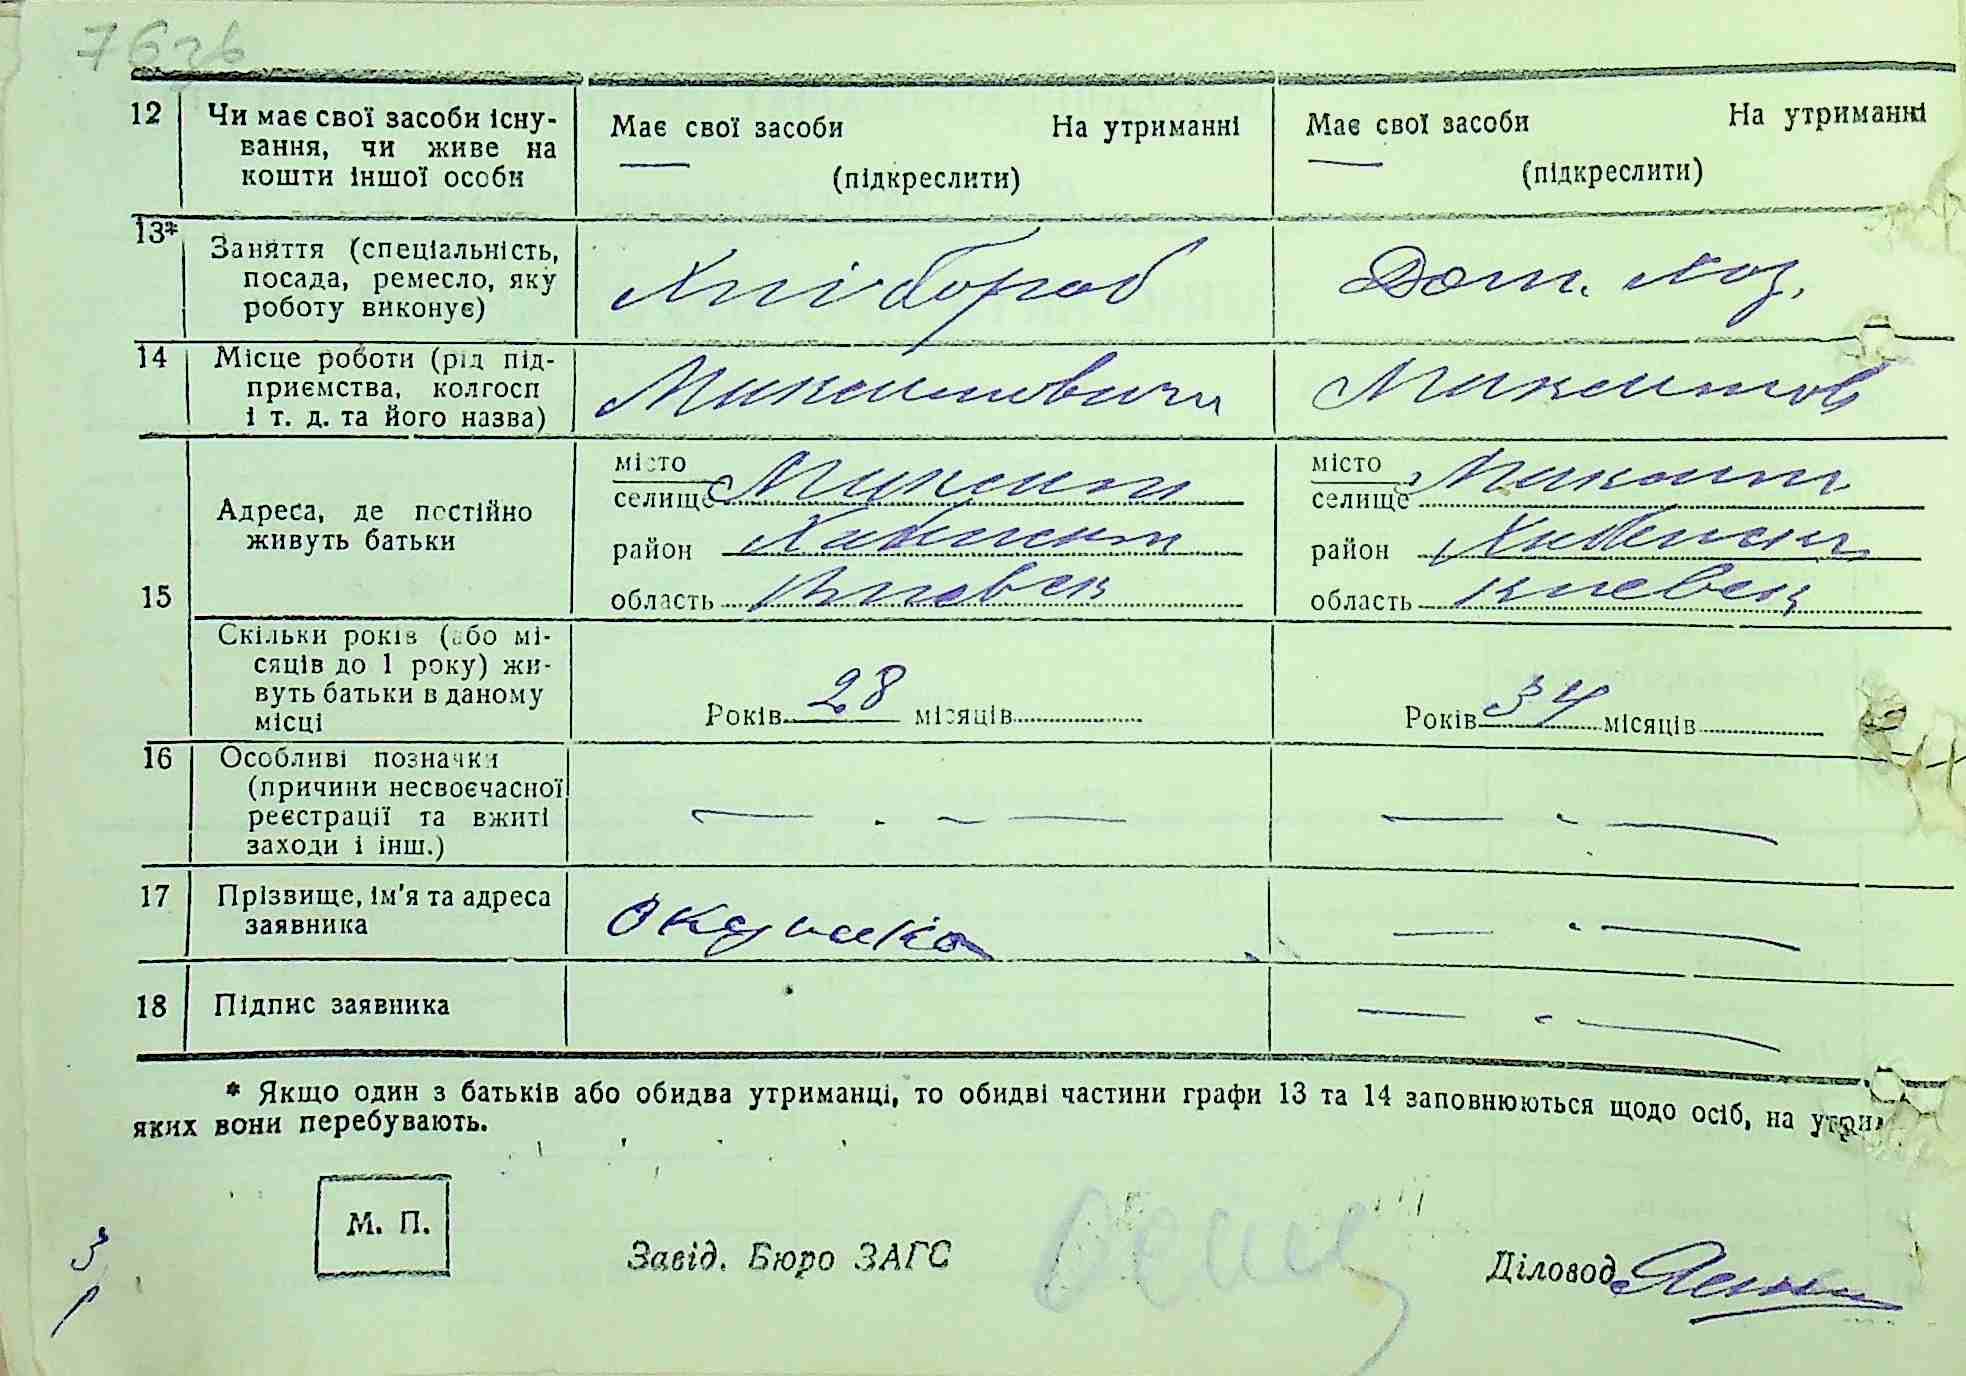 76зв
12 Чи має свої засоби існу-
вання, чи живе на
кошти іншої особи
Має свої засоби На утриманні
(підкреслити)
Має свої засоби На утриманні
(підкреслити)
13* Заняття (спеціальність,
посада, ремесло, яку
роботу виконує)
Хлібороб
Дом. хоз.
14 Місце роботи (рід під-
приємства, колгосп
і т. д. та його назва)
Максимовичи
Максимов
15 Адреса, де постійно
живуть батьки
місто
селище Максим
район
область Киевск
місто
селище Максим
район
область Киевск
Скільки років (або мі-
сяців до 1 року) жи-
вуть батьки в даному
місці
Років 28 місяців
Років 34 місяців
16 Особливі позначки
(причини несвоєчасної
реєстрації та вжиті
заходи і інш.)
17 Прізвище, ім'я та адреса
заявника
18 Підпис заявника
* Якщо один з батьків або обидва утриманці, то обидві частини графи 13 та 14 заповнюються щодо осіб, на утрим
яких вони перебувають.
М. П.
Завід. Бюро ЗАГС
Діловод